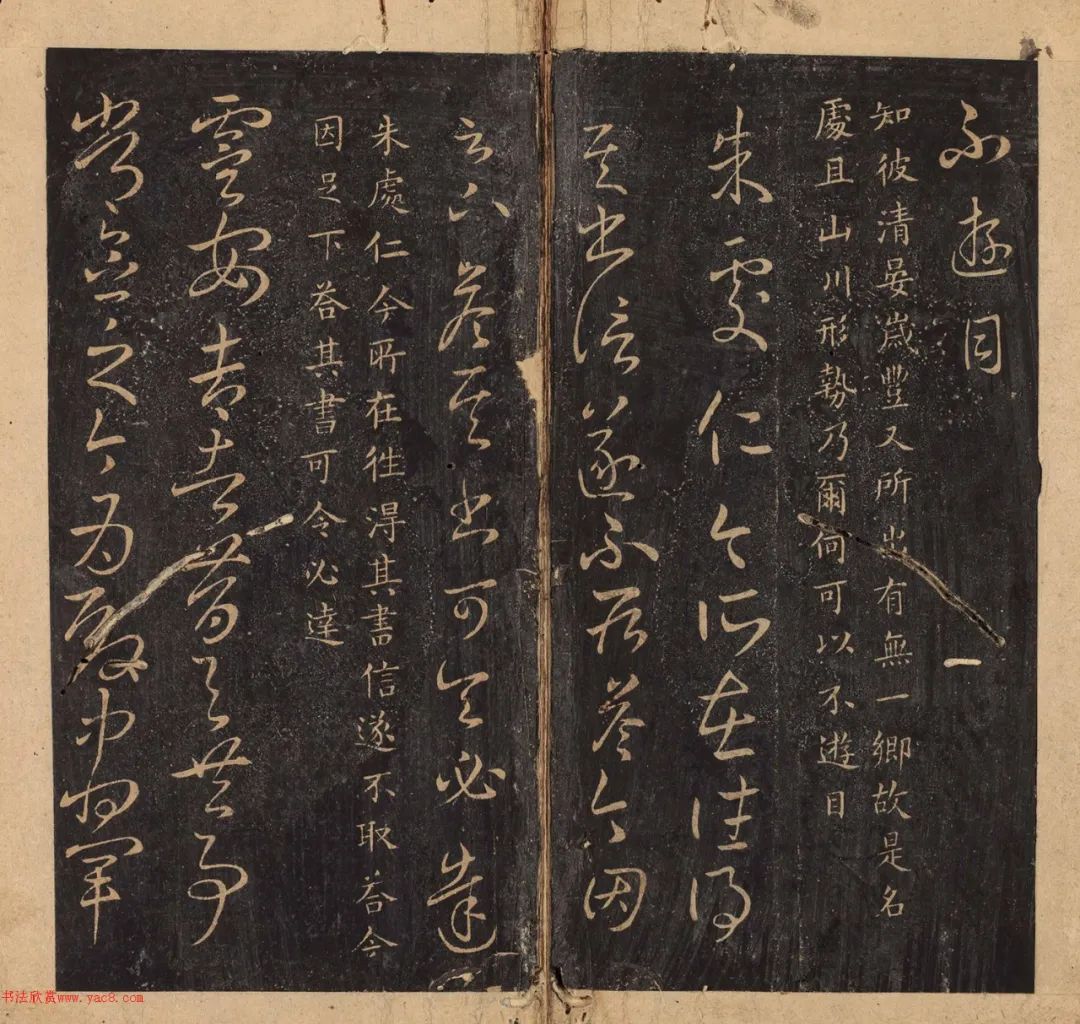 不遊目
知彼清晏歲豐又所出有無一鄉故是名
處且山川形勢乃爾何可以不遊目
朱處仁今所在往得
其書信遂不取答今因
足下答其書可令必達
朱處仁今所在徃淂其書信遂不取荅今
因足下荅其書可令必達
虞安吉者昔與共事
常念之今為殿中將軍
书法欣赏www.yac8.com